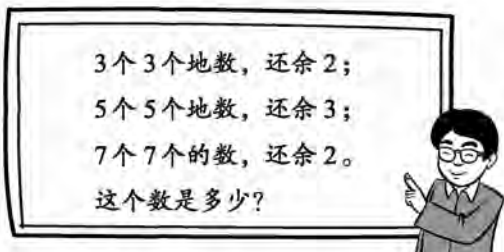 3个3个地数，还余2；
5个5个地数，还余3；
7个7个的数，还余2。
这个数是多少？